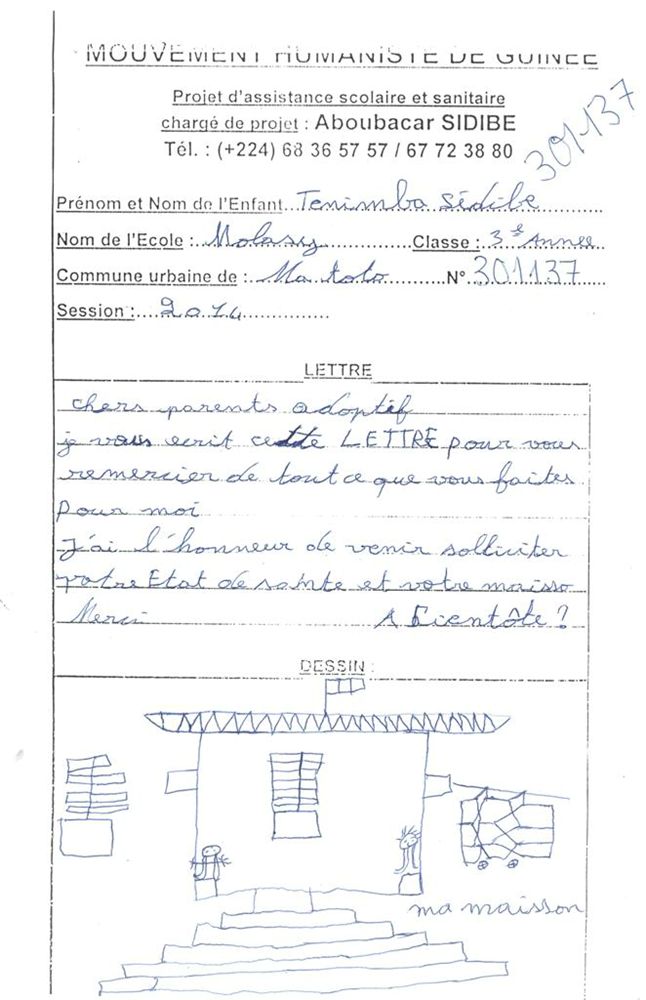 MOUVEMENT HUMANISTE DE GUINEE
Projet d'assistance scolaire et sanitaire
chargé de projet : Aboubacar SIDIBE
Tél. : (+224) 68 36 57 57 / 67 72 38 80
301137
Prénom et Nom de l'Enfant...Tenimba Sidibe
Nom de l'Ecole :..Molasy..............Classe :..3è Annee
Commune urbaine de :..Matoto.........N° 301137
Session :....2014................
LETTRE
chers parents adoptif
je vous ecrit cette LETTRE pour vous
remercier de tout ce que vous faites
pour moi
J'ai l'honneur de venir solliciter
votre Etat de sainte et votre maisso
Merci A Bientôte ?
DESSIN :
ma maisson